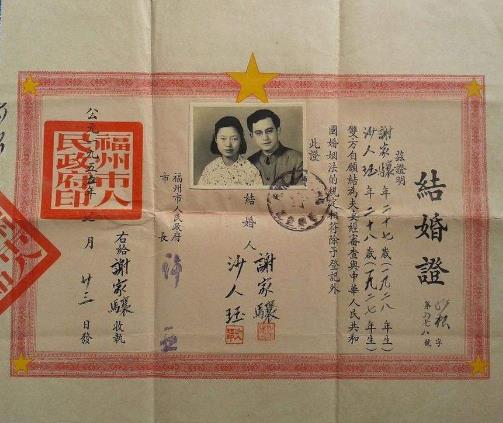 結婚證
字
第 號
茲證明
謝家驥 年二十七歲(一九二八年生)
沙人珏 年二十八歲(一九二七年生)
雙方自願結為夫妻經審查與中華人民共和
國婚姻法的規定相符除予登記外
此證
結婚人
謝家驥
沙人珏
福州市人民政府
市長
右給謝家驥收執
公元一九五五年 月廿三日發
福州市人
民政府印